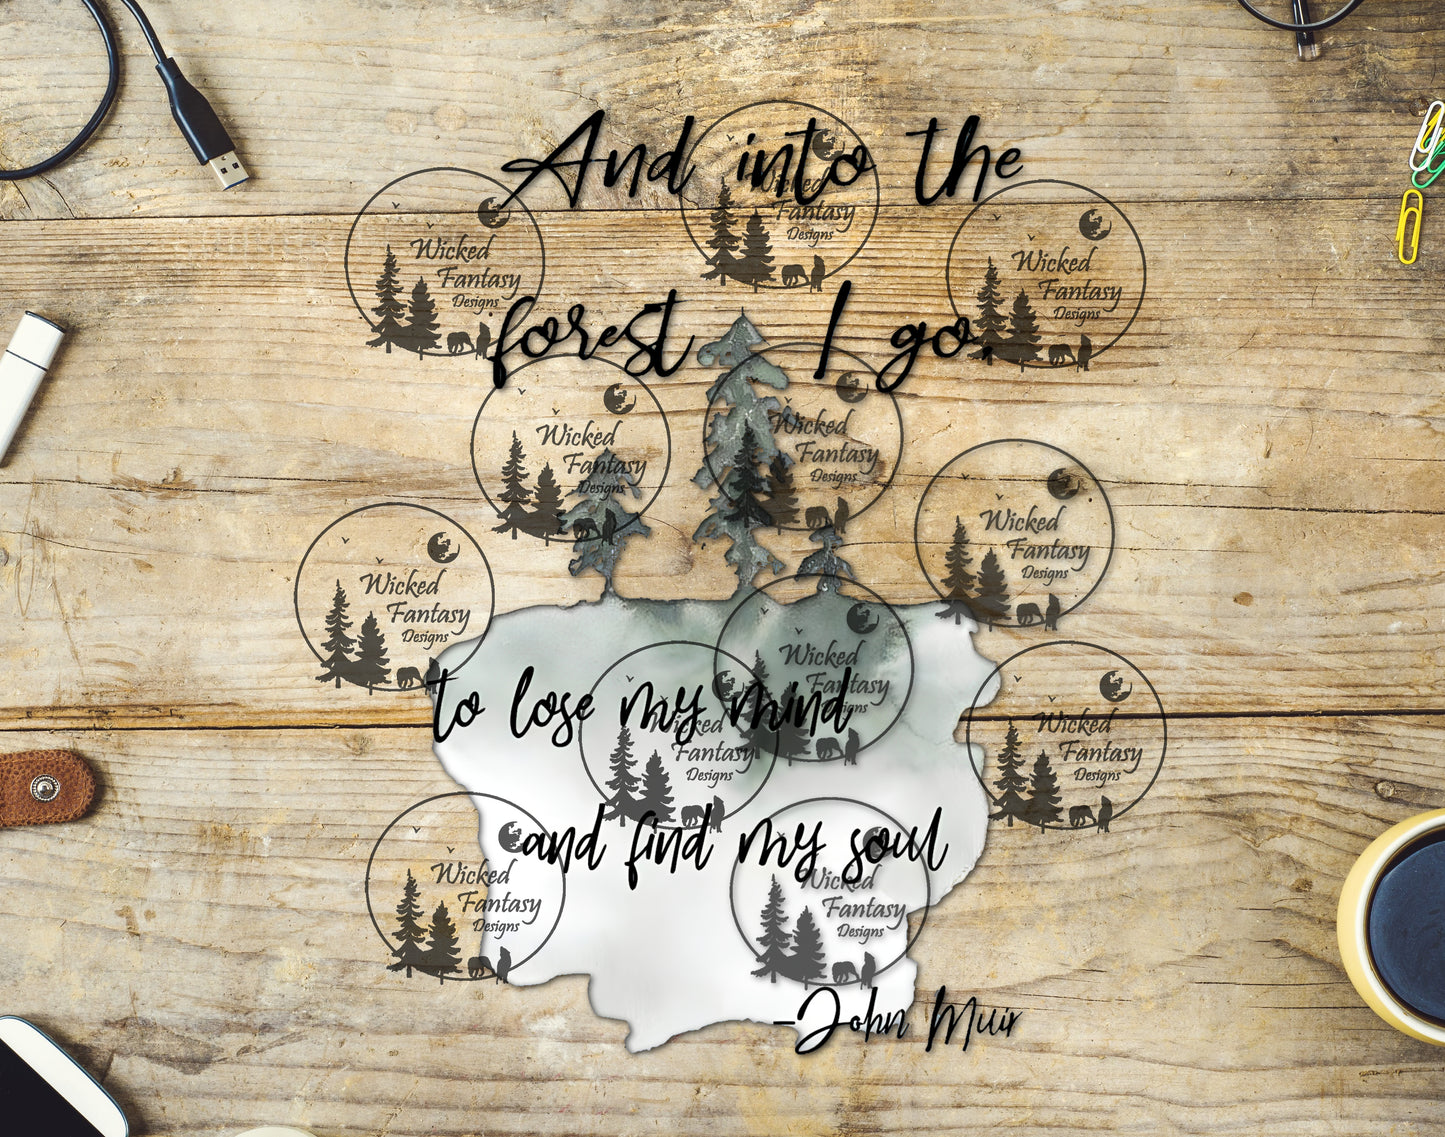 And into the
Wicked
Fantasy
Designs
Wicked
Fantasy
Designs
Wicked
Fantasy
Designs
forest I go,
Wicked
Fantasy
Designs
Wicked
Fantasy
Designs
Wicked
Fantasy
Designs
Wicked
Fantasy
Designs
Wicked
Fantasy
Designs
to lose my mind
Wicked
Fantasy
Designs
Wicked
Fantasy
Designs
and find my soul
Wicked
Fantasy
Designs
Wicked
Fantasy
Designs
-John Muir